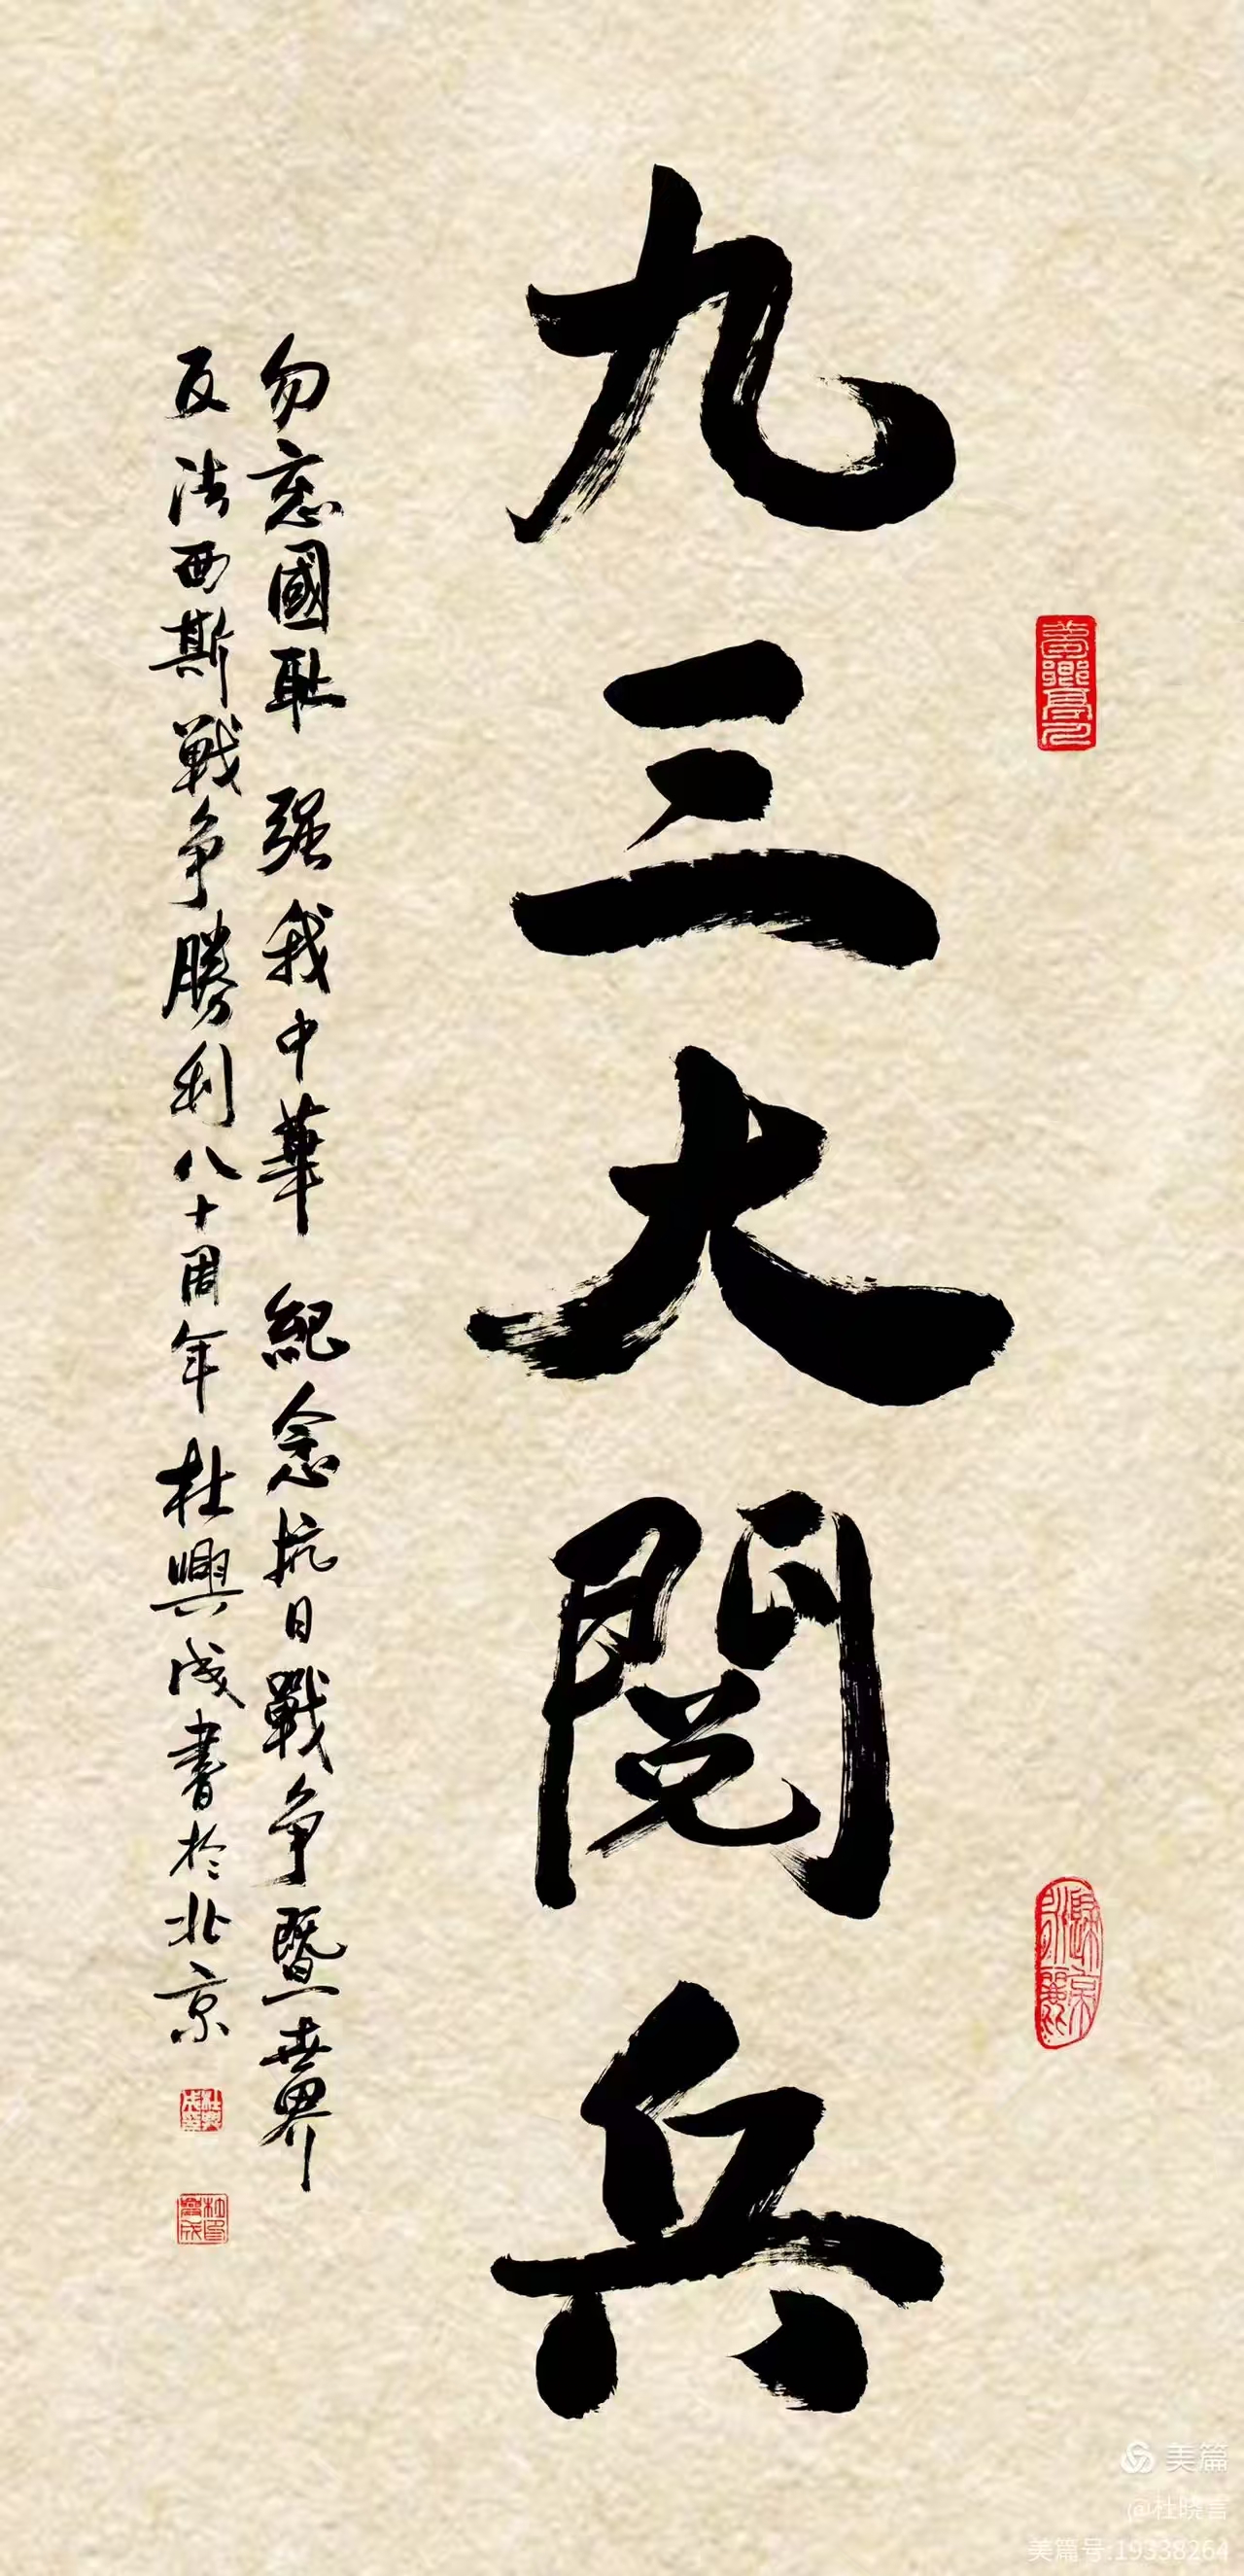 九三大閱兵
勿忘國耻 强我中華 紀念抗日戰争暨世界
反法西斯戰争勝利八十周年 杜興成書於北京
美篇
@杜晓言
美篇号:19338264